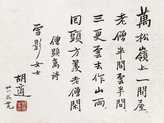 萬松嶺上一間屋
老僧半間雲半間
三更雲去作山雨
回頭方羡老僧閒
僧顯萬詩
雪影女士
胡適